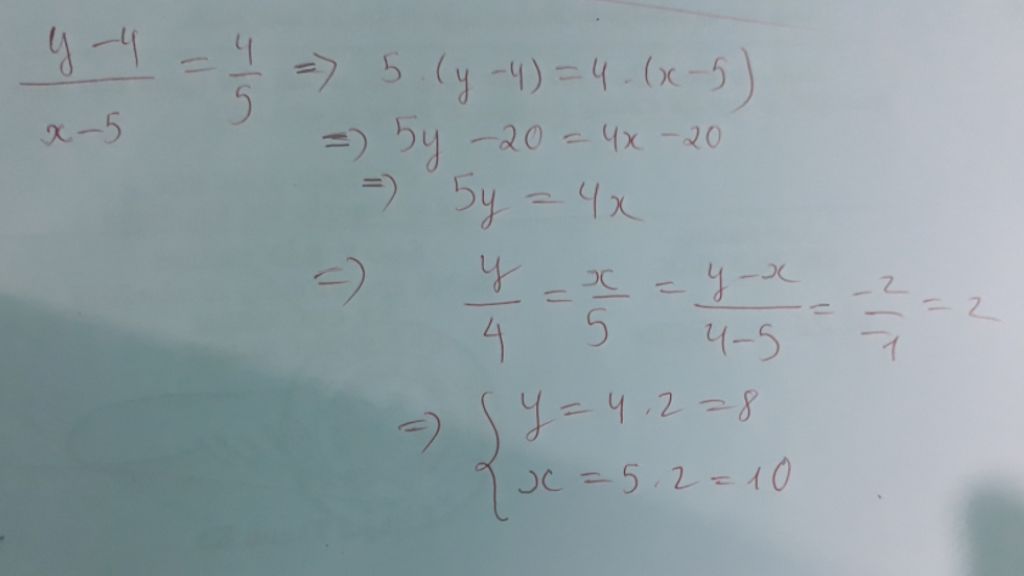 y-4/x-5 = 4/5 => 5 . (y - 4) = 4 . (x - 5)
=> 5y - 20 = 4x - 20
=> 5y = 4x
=> y/4 = x/5 = y-x/4-5 = -2/-1 = 2
=> { y = 4 . 2 = 8
x = 5 . 2 = 10